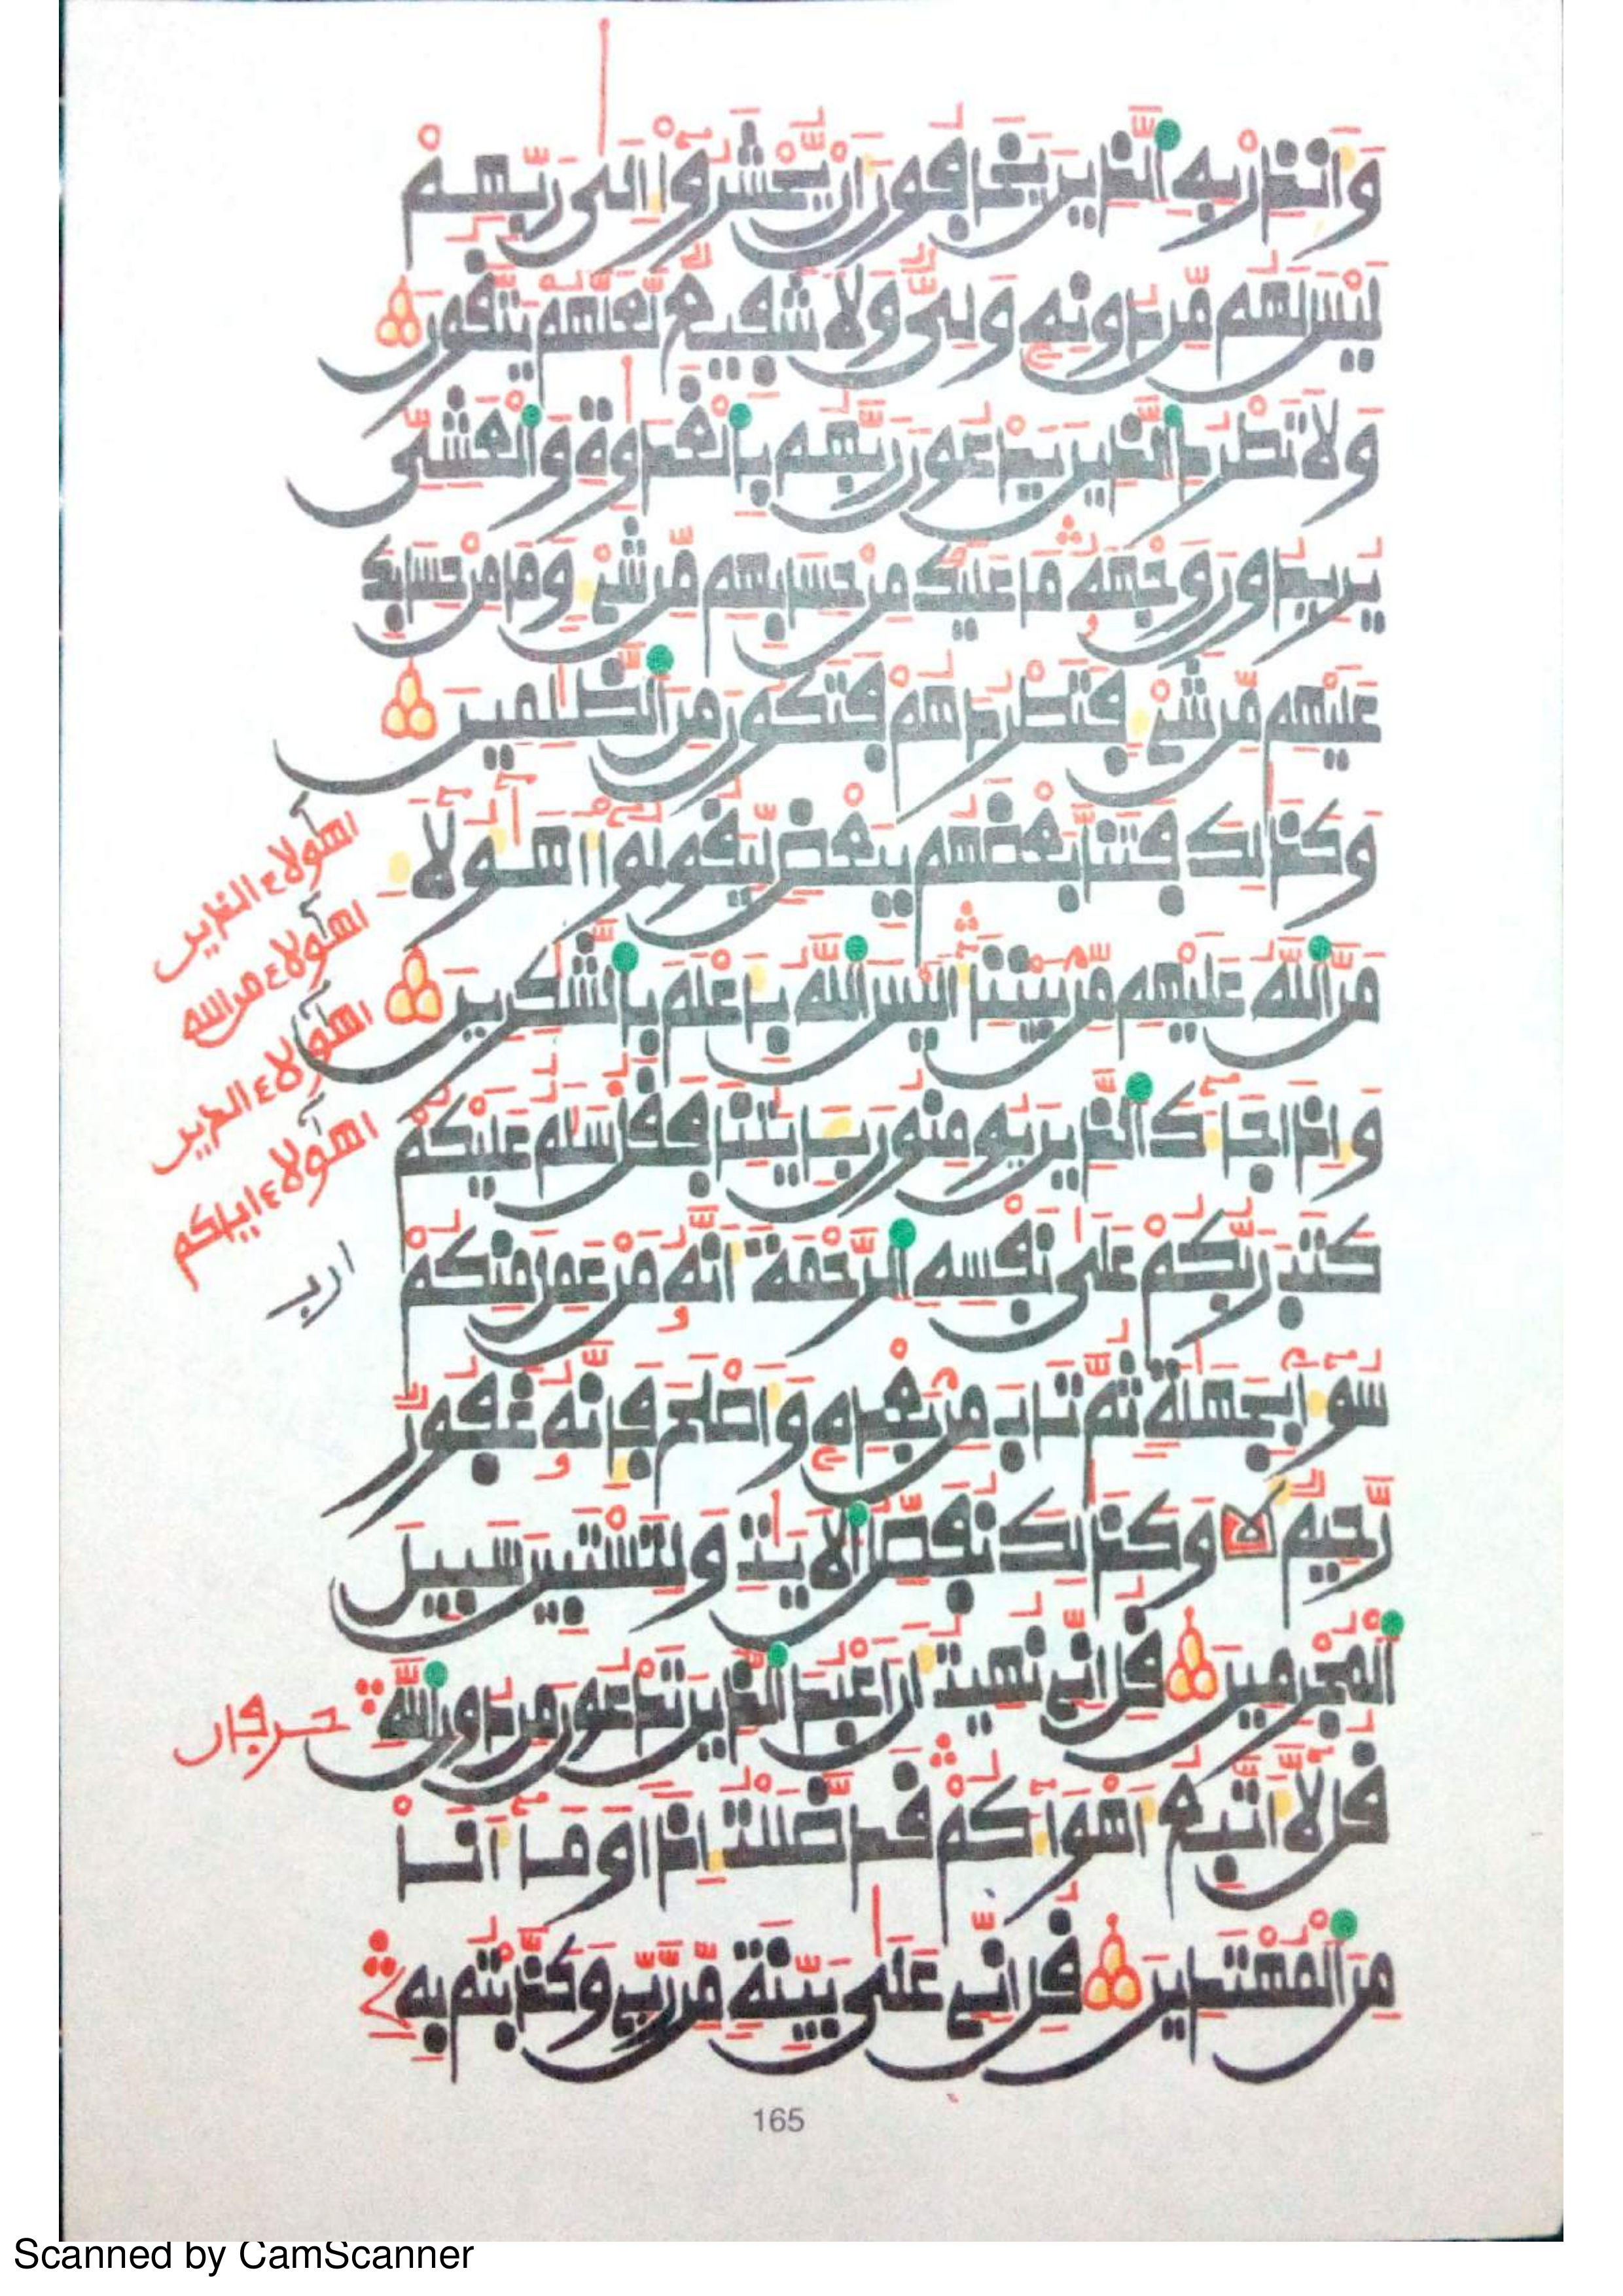 وَأَنذِرْ بِهِ ٱلَّذِينَ يَخَافُونَ أَنْ يُّحْشَرُوٓاْ إِلَىٰ رَبِّهِمْ
لَيْسَ لَهُم مِّن دُونِهِۦ وَلِيٌّ وَلَا شَفِيعٌ لَّعَلَّهُمْ يَتَّقُونَ
وَلَا تَطْرُدِ ٱلَّذِينَ يَدْعُونَ رَبَّهُم بِٱلْغَدَوٰةِ وَٱلْعَشِيِّ
يُرِيدُونَ وَجْهَهُۥ مَا عَلَيْكَ مِنْ حِسَابِهِم مِّن شَيْءٍ وَمَا مِنْ حِسَابِكَ
عَلَيْهِم مِّن شَيْءٍ فَتَطْرُدَهُمْ فَتَكُونَ مِنَ ٱلظَّٰلِمِينَ
وَكَذَٰلِكَ فَتَنَّا بَعْضَهُم بِبَعْضٍ لِّيَقُولُوٓاْ أَهَٰٓؤُلَآءِ
مَنَّ ٱللَّهُ عَلَيْهِم مِّنۢ بَيْنِنَآ أَلَيْسَ ٱللَّهُ بِأَعْلَمَ بِٱلشَّٰكِرِينَ
وَإِذَا جَآءَكَ ٱلَّذِينَ يُومِنُونَ بِـَٔايَٰتِنَا فَقُلْ سَلَٰمٌ عَلَيْكُمْ
كَتَبَ رَبُّكُمْ عَلَىٰ نَفْسِهِ ٱلرَّحْمَةَ أَنَّهُۥ مَنْ عَمِلَ مِنكُمْ
سُوٓءًا بِجَهَٰلَةٍ ثُمَّ تَابَ مِنۢ بَعْدِهِۦ وَأَصْلَحَ فَإِنَّهُۥ غَفُورٌ
رَّحِيمٌ وَكَذَٰلِكَ نُفَصِّلُ ٱلْأيَٰتِ وَلِتَسْتَبِينَ سَبِيلَ
ٱلْمُجْرِمِينَ قُلْ إِنِّي نُهِيتُ أَنْ أَعْبُدَ ٱلَّذِينَ تَدْعُونَ مِن دُونِ ٱللَّهِ
قُل لَّآ أَتَّبِعُ أَهْوَآءَكُمْ قَدْ ضَلَلْتُ إِذًا وَمَآ أَنَا۠
مِنَ ٱلْمُهْتَدِينَ قُلْ إِنِّي عَلَىٰ بَيِّنَةٍ مِّن رَّبِّي وَكَذَّبْتُم بِهِۦ
اهـٓولاء الذين
اهـٓولاء من الله
اهـٓولاء الذين
اهـٓولاء اياكم
165
Scanned by CamScanner